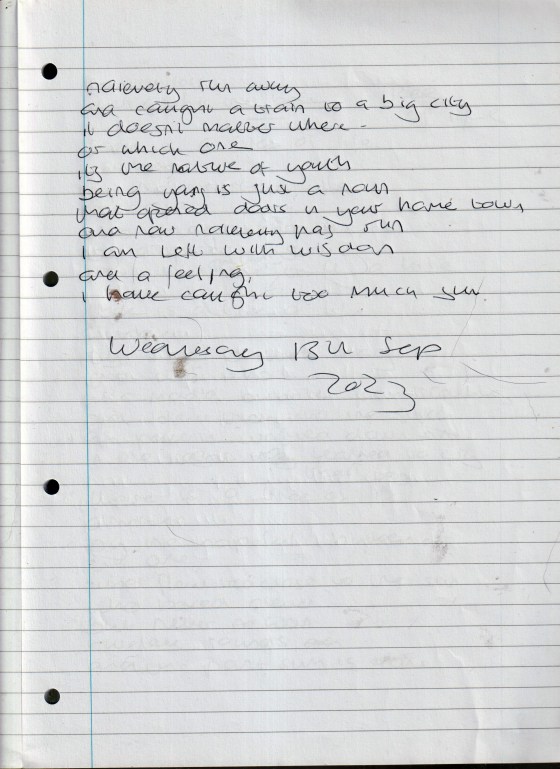 naievety run away
and caught a train to a big city
it doesnt matter where -
or which one
its the nature of youth
being yang is just a noun
that opened doors in your home town
and now naievety has run
I am left with wisdom
and a feeling,
I have caught too much sun.
Wednesday 13th Sep
2023